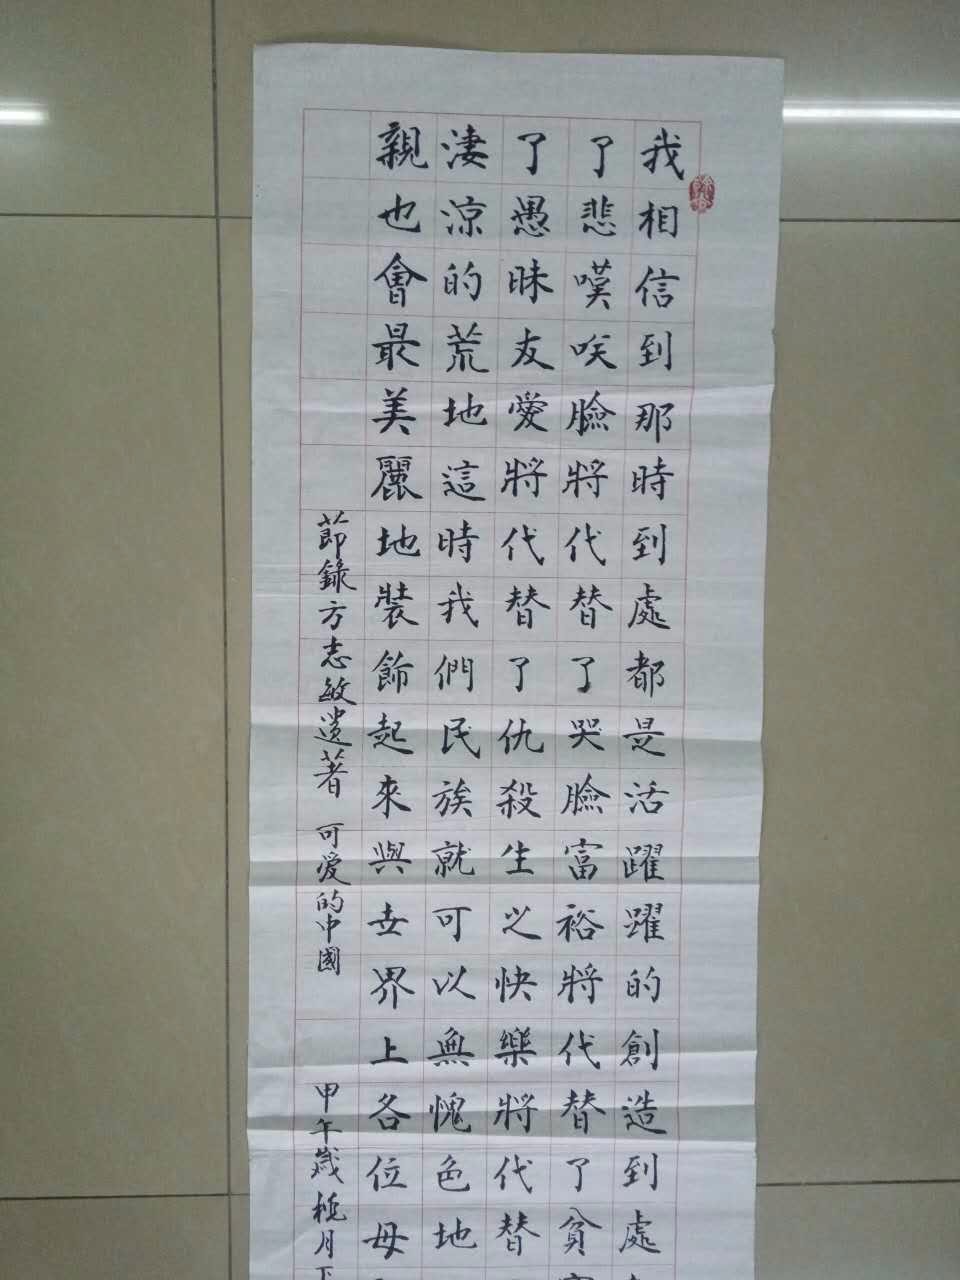 我相信到那時到處都是活躍躍的創造到處
了悲嘆咲臉將代替了哭臉富裕將代替了貧
了愚昧友愛將代替了仇殺生之快樂將代替
淒涼的荒地這時我們民族就可以無愧色地
親也會最美麗地裝飾起來與世界上各位母
節錄方志敏遺著 可愛的中國
甲午歲桃月下